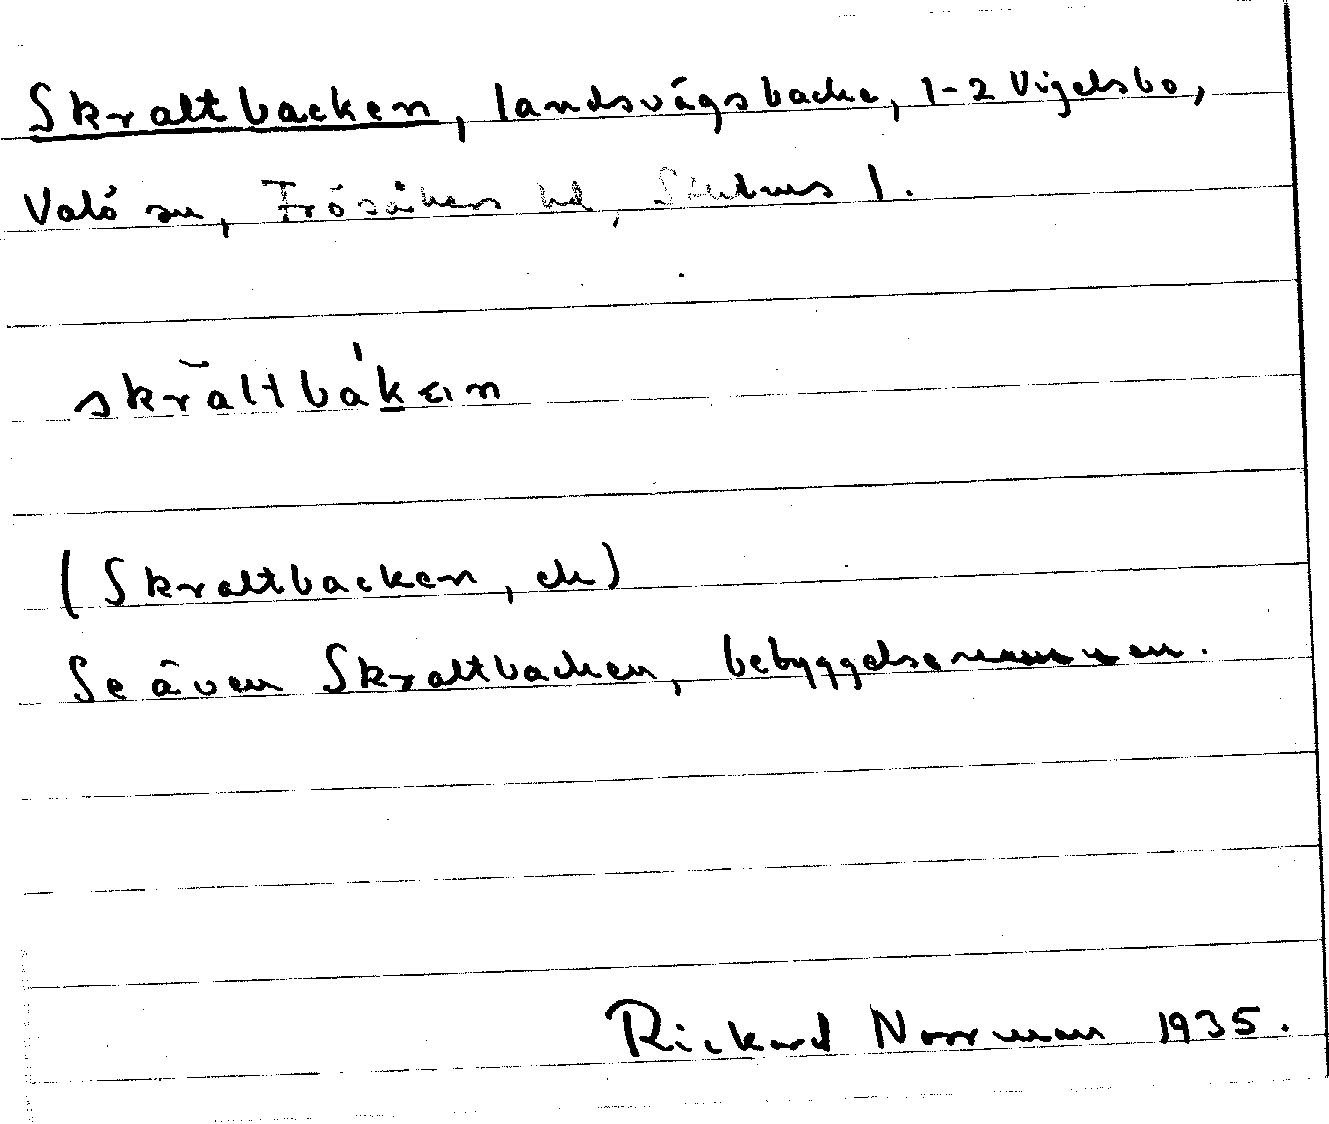 Skraltbacken, landsvägsbacke, 1-2 Vigelsbo,
Valö sn, Frösåkers hd, Sthlms l.
skrăltbák̲ən
(Skraltbacken, ek)
Se även Skraltbacken, bebyggelsenamnen.
Rickard Norrman 1935.